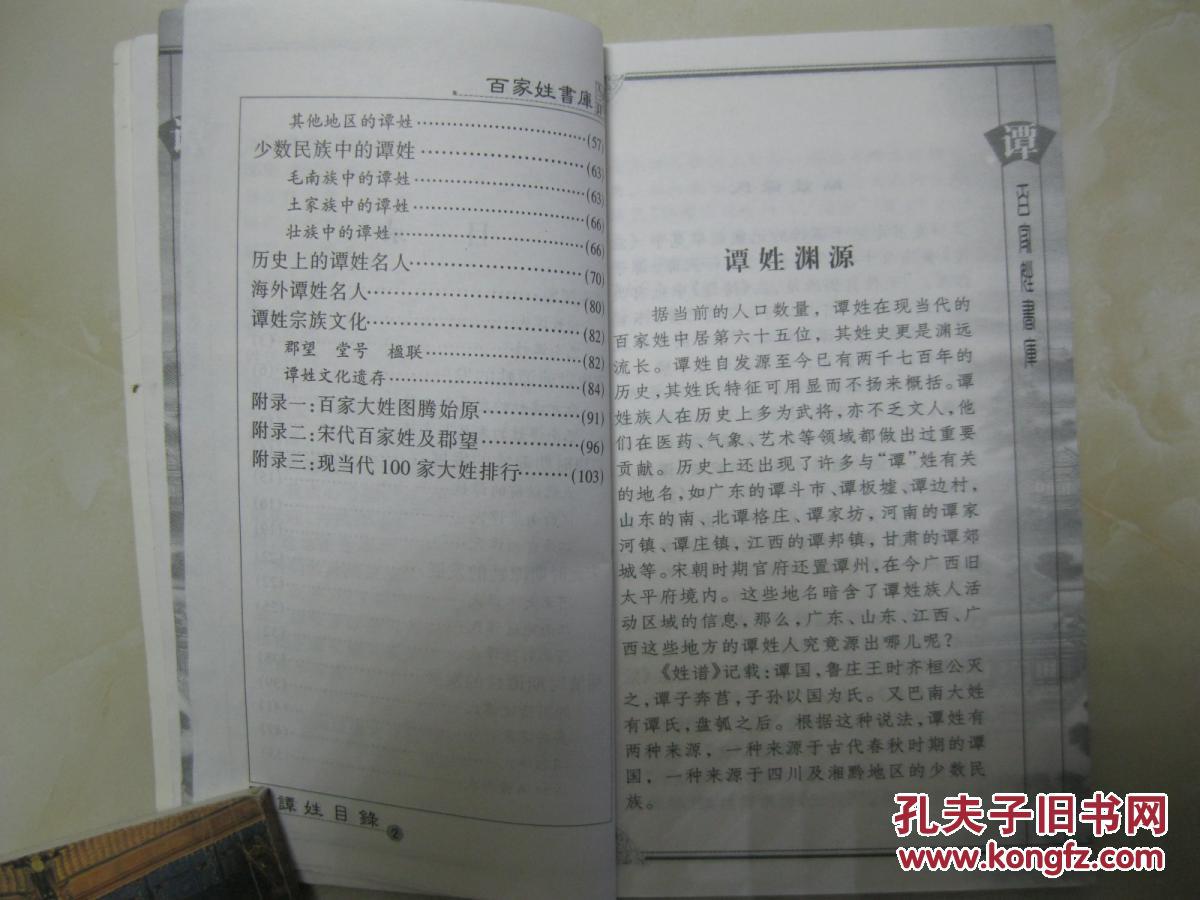 百家姓書庫
其他地区的谭姓……(57)
少数民族中的谭姓……(63)
毛南族中的谭姓……(63)
土家族中的谭姓……(66)
壮族中的谭姓……(66)
历史上的谭姓名人……(70)
海外谭姓名人……(80)
谭姓宗族文化……(82)
郡望 堂号 楹联……(82)
谭姓文化遗存……(84)
附录一:百家大姓图腾始原……(91)
附录二:宋代百家姓及郡望……(96)
附录三:现当代100家大姓排行……(103)
譚姓目錄
②
谭
百家姓書庫
谭姓渊源
据当前的人口数量，谭姓在现当代的
百家姓中居第六十五位，其姓史更是渊远
流长。谭姓自发源至今已有两千七百年的
历史，其姓氏特征可用显而不扬来概括。谭
姓族人在历史上多为武将，亦不乏文人，他
们在医药、气象、艺术等领域都做出过重要
贡献。历史上还出现了许多与“谭”姓有关
的地名，如广东的谭斗市、谭板墟、谭边村，
山东的南、北谭格庄、谭家坊，河南的谭家
河镇、谭庄镇，江西的谭邦镇，甘肃的谭郊
城等。宋朝时期官府还置谭州，在今广西旧
太平府境内。这些地名暗含了谭姓族人活
动区域的信息，那么，广东、山东、江西、广
西这些地方的谭姓人究竟源出哪儿呢？
《姓谱》记载：谭国，鲁庄王时齐桓公灭
之，谭子奔莒，子孙以国为氏。又巴南大姓
有谭氏，盘瓠之后。根据这种说法，谭姓有
两种来源，一种来源于古代春秋时期的谭
国，一种来源于四川及湘黔地区的少数民
族。
孔夫子旧书网
www.kongfz.com